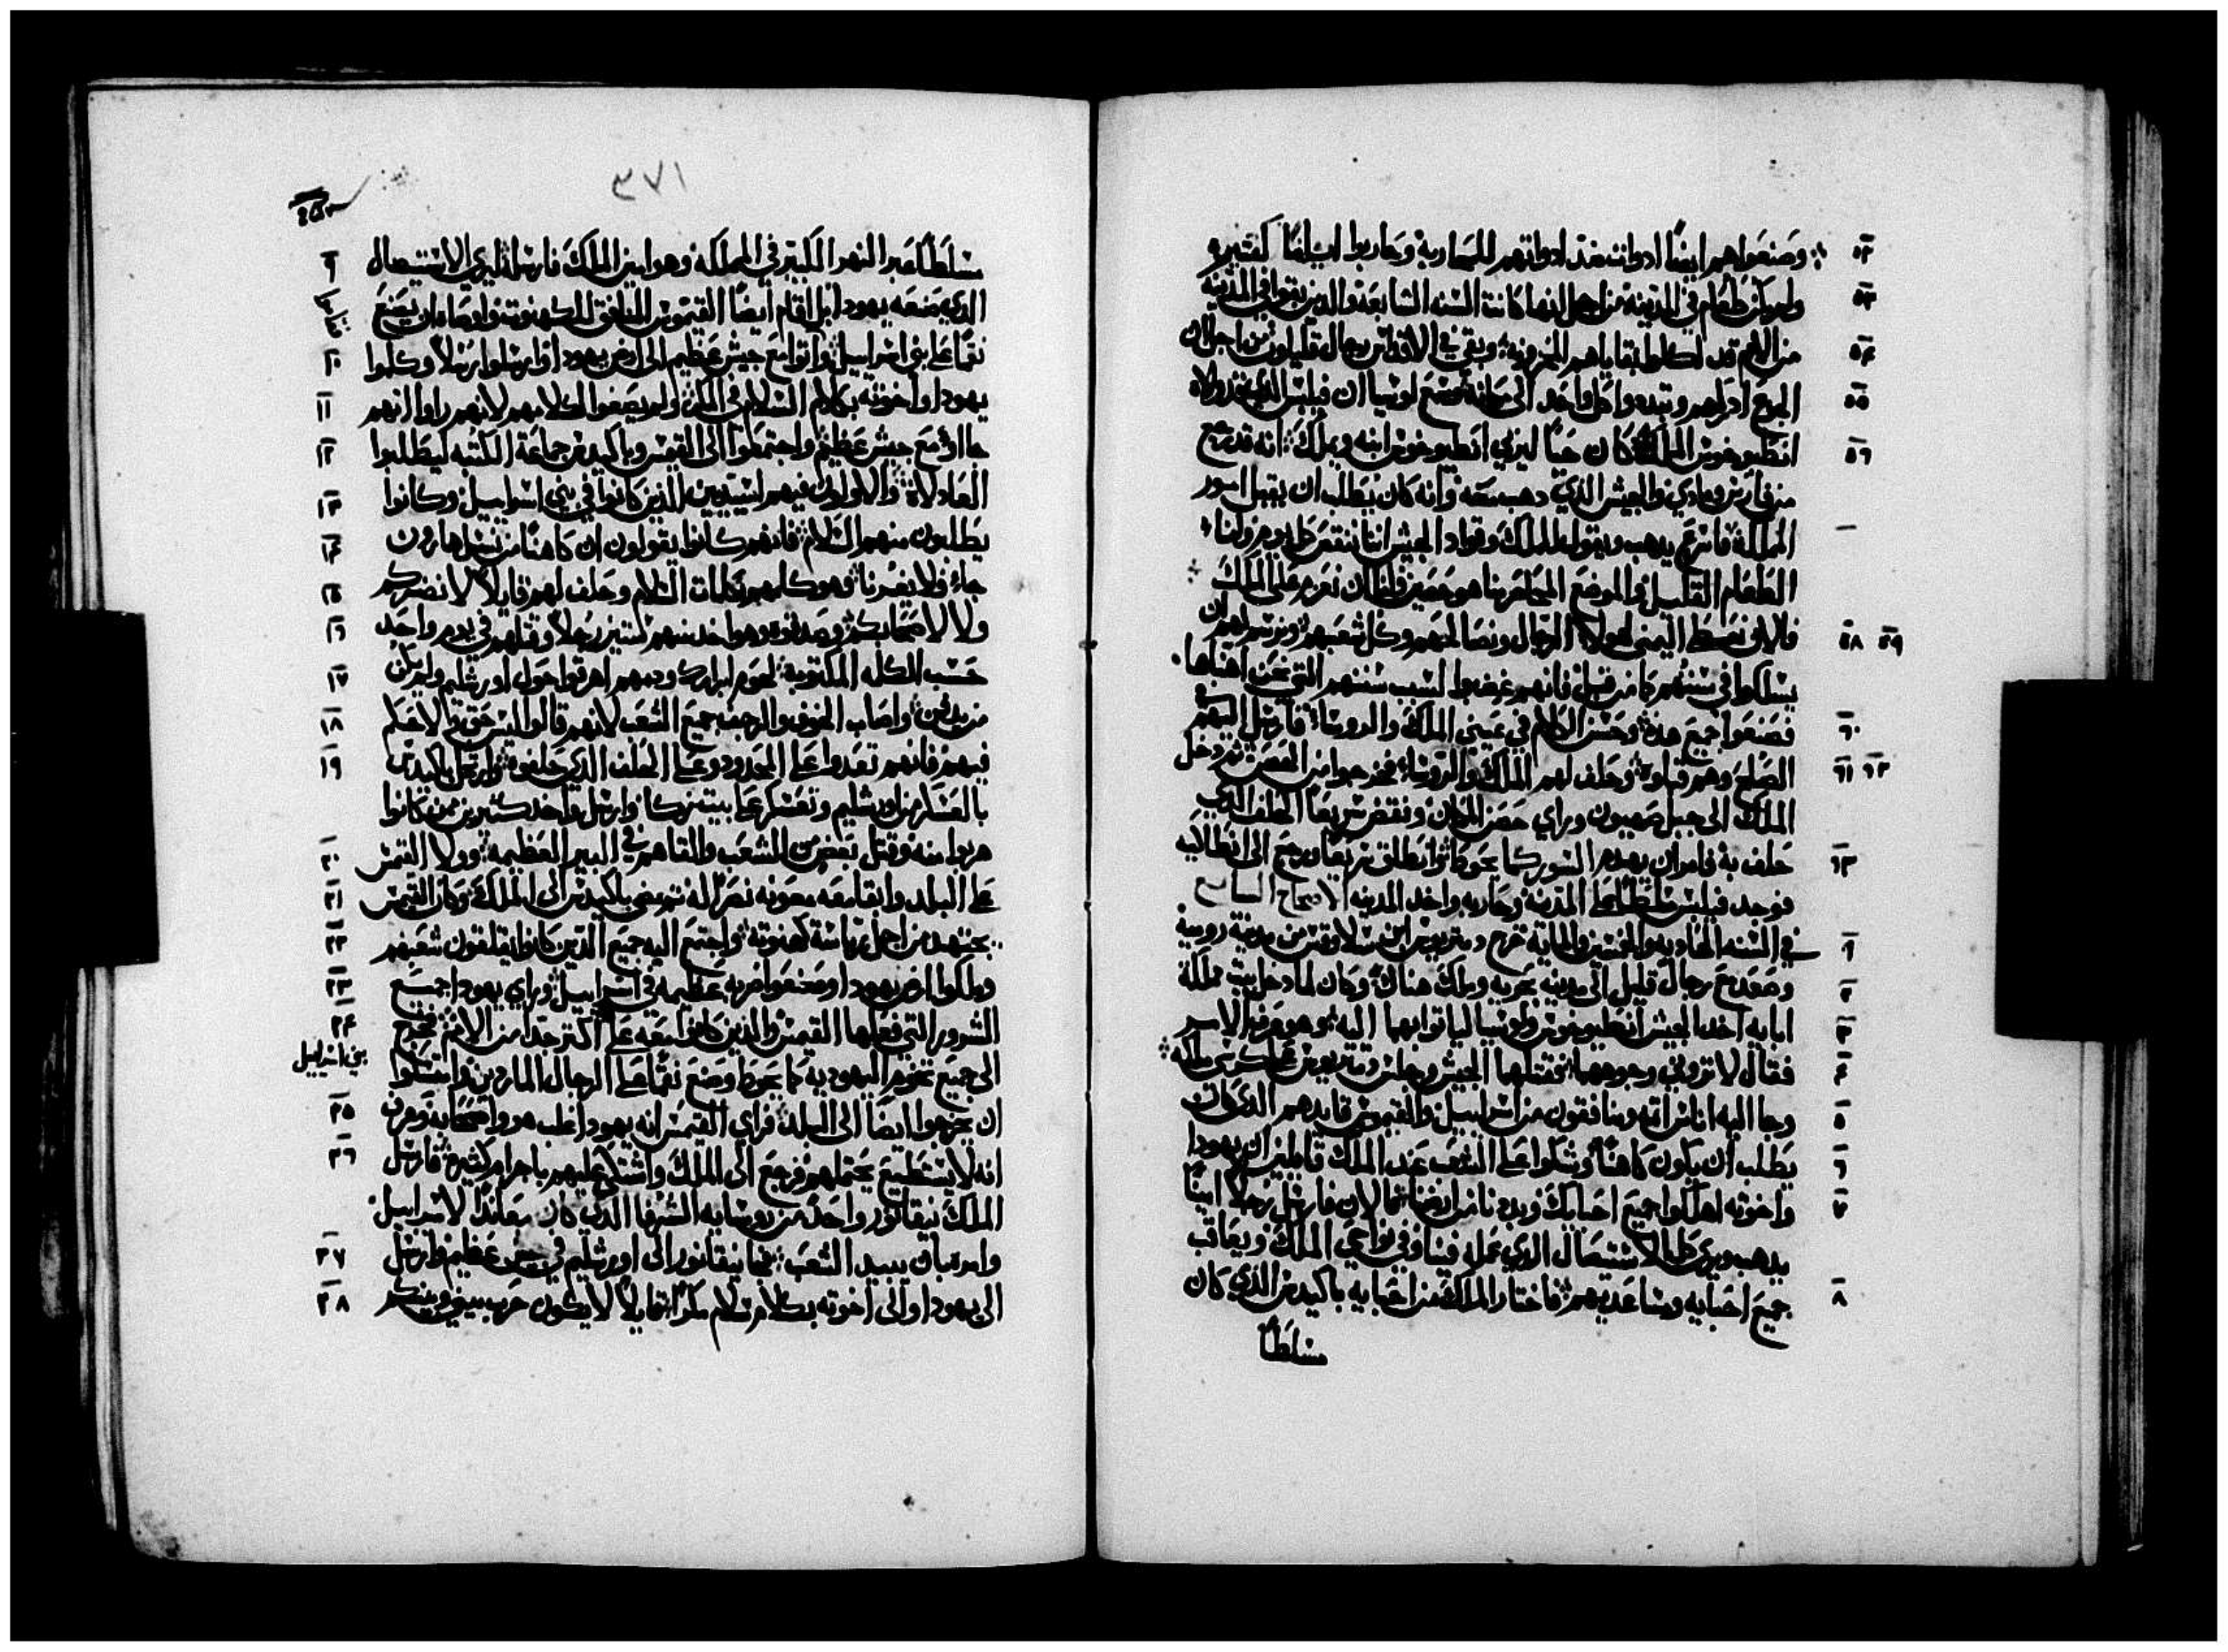 ٥٢ وصنعوا هم ايضًا ادوات ضد ادواتهم للمحاربة وحاربوا ايامًا كثيره
٥٣ ولم يكن طعام في المدينة من اجل انها كانت السنه السابعة والذين بقوا في المدينة
٥٤ من الامم قد اكلوا بقاياهم المخزونه وبقي في الاقداس رجال قليلون من اجل ان
٥٥ الجوع ادركهم وتبددوا كل واحد الى مكانه وسمع لوسيا ان فيلبس الذي
٥٦ انطيوخوس الملك كان حيًا ليربي انطيوخوس ابنه ويملك انه قد رجع
من فارس وماداي والجيش الذي دهب معه وانه كان يطلب ان يقبل امور
المملكة فاسرع يدهب ويقول للملك وقواد الجيش اننا ننقص كل يوم ولنا
الطعام القليل والموضع المحاصر منا هو حصين ولنا ان نعزم على الملك
٥٨ ٥٩ فالان نعط اليمني لهولاء الرجال ونصالحهم وكل شعبهم ونرسم لهم ان
يسلكوا في سننهم كما من قبل فانهم غضبوا لسبب سننهم التي نحن اهناها
٦٠ فصنعوا جميع هذه وحسن الكلام في عيني الملك والروسا فارسل اليهم في
٦١ ٦٢ الصلح وهم قبلوه وحلف لهم الملك والروسا فخرجوا من الحصن ثم دخل
الملك الى جبل صهيون وراي حصن المكان ونقض سريعًا الحلف الذي
٦٣ حلف به فامر ان يهدم السور كما يحوط وانطلق سريعًا ورجع الى انطاكيه
فوجد فيلبس سلطًا على المدينة وحاربه واخد المدينه الاصحاح السابع
١ في السنه الحاديه والخمسين والمايه خرج ديمتريوس ابن سلاوقس من مدينة رومية
٢ وصعد مع رجال قليل الى مدينه بحريه وملك هناك وكان لما دخل بيت مملكة
٣ ابايه اخد الجيش انطيوخوس ولوسيا لياتوا بهما اليه وهو عرف الامر
٤ فقال لا تروني وجوههما فقتلهما الجيش وجلس ديمتريوس على كرسي ملكه
٥ وجا اليه اناس اتمه ومنافقون من اسراييل والقيموس قايدهم الذي كان
٦ يطلب ان يكون كاهنًا وشكوا على الشعب عند الملك قايلين ان يهودا
٧ واخوته اهلكوا جميع احبايك وبددنا من ارضنا فالان فارسل رجلًا امينًا
يدهب ويري كل الاستيصال الذي عمله فينا وفي نواحي الملك ويعاقب
٨ جميع احبايه ومساعديهم فاختار الملك من احبايه باكيدس الذي كان
مسلطًا
٣٧١
٩ مسلطًا عبر النهر الكبير في المملكه وهو امين للملك فارسله ليري الاستيصال
الذي صنعه يهودا بل اقام ايضًا القيموس المنافق للكهنوت واوصاه ان يصنع
١٠ نقمًا على بني اسراييل واتوا مع جيش عظيم الى ارض يهودا وارسلوا رسلًا وكلموا
١١ يهودا واخوته بكلام السلام في المكر ولم يصغوا لكلامهم لانهم راوا انهم
١٢ جاءوا مع جيش عظيم واجتمعوا الى القيموس وباكيدس جماعة الكتبه ليطلبوا
١٣ العادلات والاولون فيهم اسيديين الذين كانوا في بني اسراييل وكانوا
١٤ يطلبون منهم السلام فانهم كانوا يقولون ان كاهنًا من نسل هارون
١٥ جاء فلا يغدرنا فهو كلمهم بكلمات السلام وحلف لهم قايلًا لا نضركم
١٦ ولا لاصحابكم وصدقوه وهو اخد منهم ستين رجلًا وقتلهم في يوم واحد
١٧ حسب الكلمه المكتوبة لحوم ابرارك ودمهم اهرقوا حول اورشليم ولم يكن
١٨ من يدفن واصاب الخوف والرجف جميع الشعب لانهم قالوا ليس حق ولا حكم
١٩ فيهم فانهم تعدوا على الحدود وعلى الحلف الذي حلفوه وارتحل باكيدس
بالعسكر من اورشليم وتعسكر على بيت زكا وارسل واخد كثيرين ممن كانوا
٢٠ هربوا منه وقتل بعض من الشعب والقاهم في البير العظيمة وولا القيمس
٢١ على البلد وابقا معه معونه نصرًا له ثم مضى باكيدس الى الملك وكان القيمس
٢٢ يجتهد من اجل رياسة كهنوته واجتمع اليه جميع الذين كانوا يقلقون شعبهم
٢٣ وملكوا ارض يهودا وصنعوا ضربه عظيمه في اسراييل وراي يهودا جميع
٢٤ الشرور التي فعلها القيمس والذين كانوا معه على بني اسراييل اكتر جدًا من الامم فخرج
الى جميع تخوم اليهوديه كما يحوط وصنع نقمًا على الرجال الماردين وامتنعوا
٢٥ ان يخرجوا ايضًا الى البلد فراي القيمس انه يهودا غلب هو واصحابه وعرف
٢٦ انه لا يستطيع يحتملهم فرجع الى الملك واشتكى عليهم باجرام كثيرة فارسل
الملك نيقانور واحدًا من روسايه الشرفا الذي كان معاندًا لاسراييل
٢٧ وامره بان يبيد الشعب فجا نيقانور الى اورشليم في جيش عظيم وارسل
٢٨ الى يهودا والى اخوته بكلام سلام مكرًا قايلًا لا يكون حرب بيني وبينكم